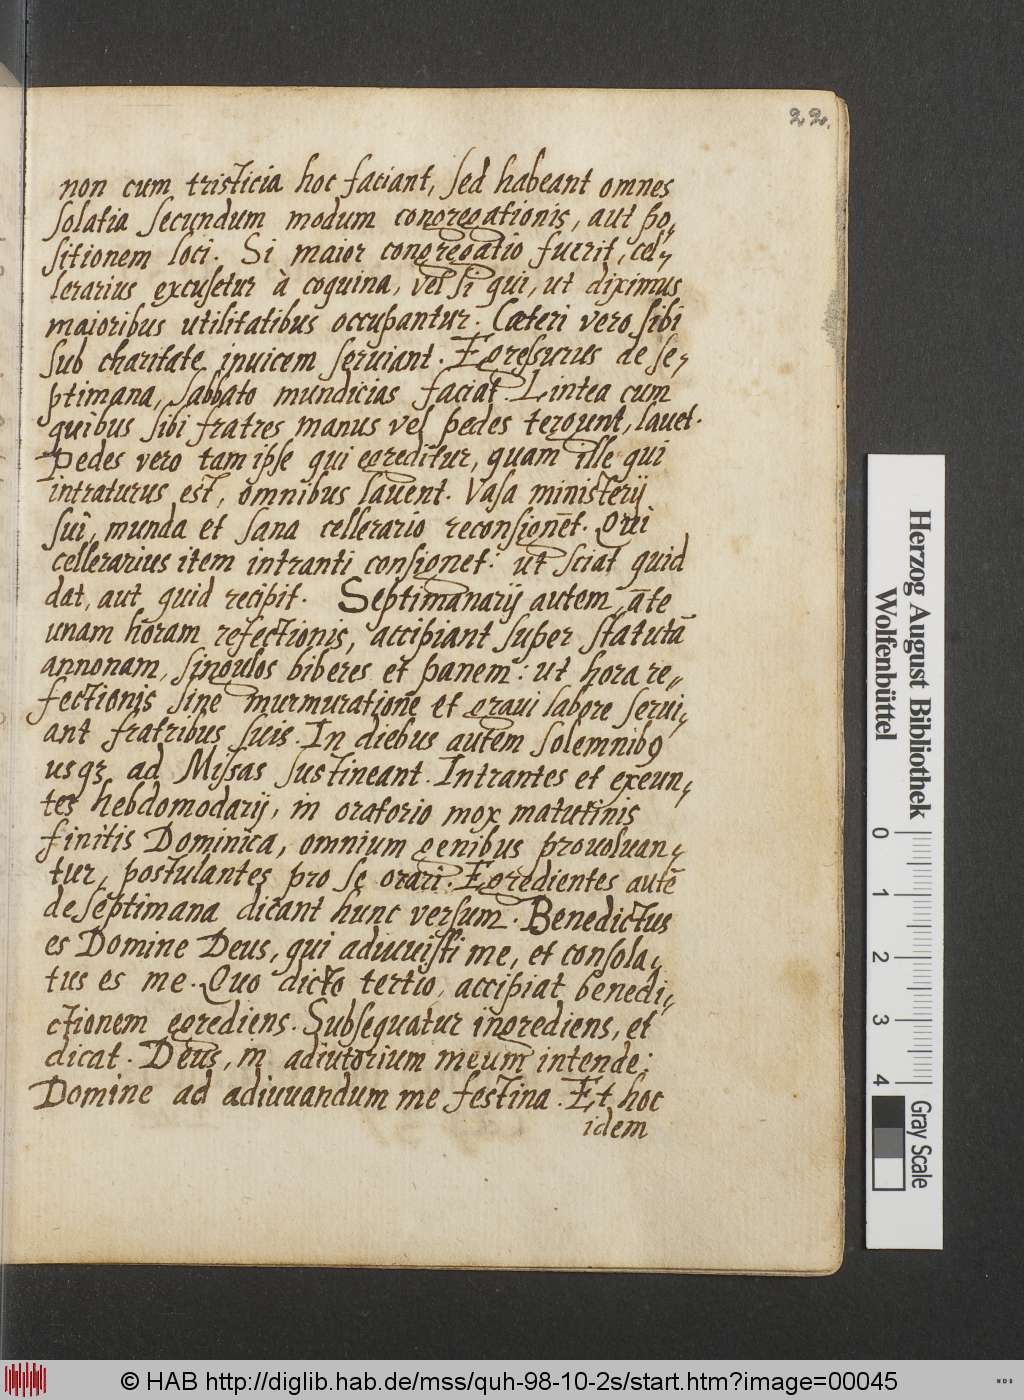 22.
non cum tristicia hoc faciant, sed habeant omnes
solatia secundum modum congregationis, aut po„
sitionem loci. Si maior congregatio fuerit, cel„
lerarius excusetur à coquina, vel si qui, ut diximus
maioribus utilitatibus occupantur. Cæteri vero sibi
sub charitate invicem serviant. Egressurus de se„
ptimana, sabbato mundicias faciat. Lintea cum
quibus sibi fratres manus vel pedes tergunt, lavet.
Pedes vero tam ipse qui egreditur, quam ille qui
intraturus est, omnibus lavent. Vasa ministerij
sui, munda et sana cellerario reconsignēt. Qui
cellerarius item intranti consignet: ut sciat quid
dat, aut quid recipit. Septimanarij autem, āte
unam horam refectionis, accipiant super statutā
annonam, singulos biberes et panem: ut hora re„
fectionis sine murmuratione et gravi labore servi„
ant fratribus suis. In diebus autem solemnibꝰ
usqꝫ ad Missas sustineant. Intrantes et exeun„
tes hebdomodarij, in oratorio mox matutinis
finitis Dominica, omnium genibus provolvan„
tur, postulantes pro se orari. Egredientes autē
de septimana dicant hunc versum. Benedictus
es Domine Deus, qui adiuvisti me, et consola„
tus es me. Quo dicto tertio, accipiat benedi„
ctionem egrediens. Subsequatur ingrediens, et
dicat. Deus, in adiutorium meum intende:
Domine ad adiuvandum me festina. Et hoc
idem
Herzog August Bibliothek
Wolfenbüttel
0 1 2 3 4
Gray Scale
© HAB http://diglib.hab.de/mss/quh-98-10-2s/start.htm?image=00045